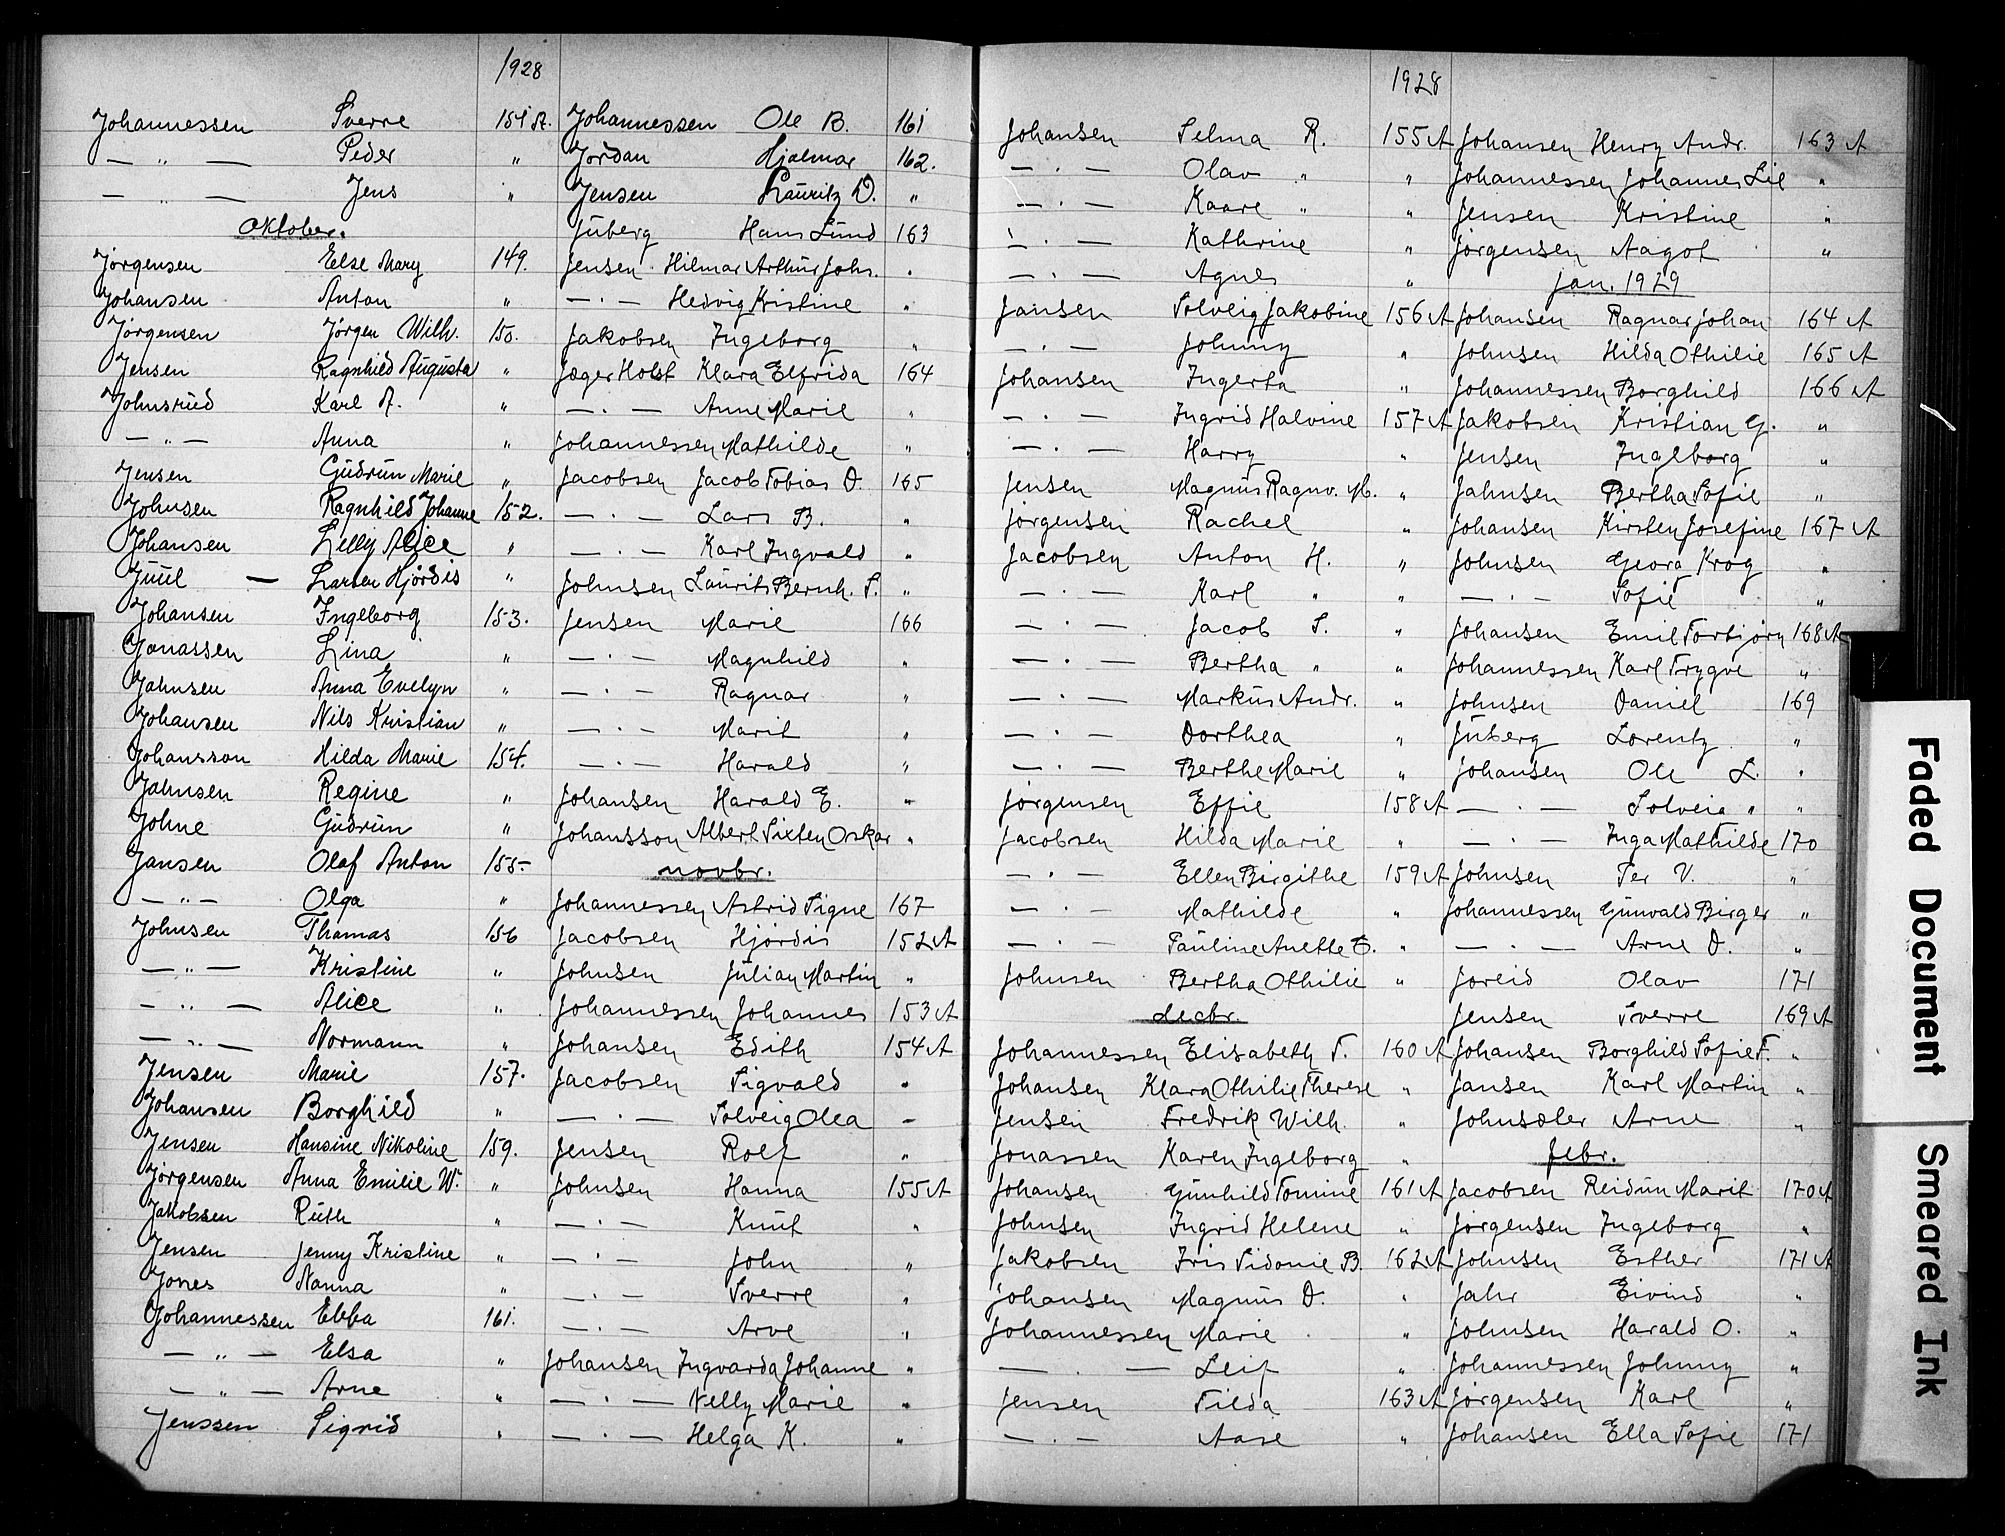 1928
Johannessen Sverre 151 A.
— " — Peder "
— " — Jens "
Oktober.
Jørgensen Else Mary 149.
Johansen Anton "
Jørgensen Jørgen Wilh. 150.
Jensen Ragnhild Augusta "
Johnsrud Karl A. "
— " — Anna "
Jensen Gudrun Marie "
Johnsen Ragnhild Johanne 152.
Johansen Lilly Alice "
Juul — Larsen Hjørdis "
Johansen Ingeborg 153.
Jonassen Lina "
Johnsen Anna Evelyn "
Johansen Nils Kristian "
Johansson Hilda Marie 154.
Johnsen Regine "
Johne Gudrun "
Jansen Olaf Anton 155.
— " — Olga "
Johnsen Thomas 156
— " — Kristine "
— " — Alice "
— " — Normann "
Jensen Marie 157.
Johansen Borghild "
Jensen Hansine Nikoline 159.
Jørgensen Anna Emilie W. "
Jakobsen Ruth "
Jensen Jenny Kristine "
Jones Nanna "
Johannessen Ebba 161.
— " — Elsa "
— " — Arne "
Jenssen Sigrid "
Johannessen Ole B. 161
Jordan Hjalmar 162.
Jensen Lauritz O. "
Juberg Hans Lund 163
Jensen Hilmar Arthur Johs. "
— " — Hedvig Kristine "
Jakobsen Ingeborg "
Jæger Holst Klara Elfrida 164
— " — Anne Marie "
Johannessen Mathilde "
Jacobsen Jacob Tobias O. 165
— " — Lars B. "
— " — Karl Ingvald "
Johnsen Laurits Bernh. S. "
Jensen Marie 166
— " — Magnhild "
— " — Ragnar "
— " — Marit "
— " — Harald "
Johansen Harald E. "
Johansson Albert Sixten Oskar "
novbr.
Johannessen Astrid Signe 167
Jacobsen Hjørdis 152 A
Johnsen Julian Martin "
Johannessen Johannes 153 A
Johansen Edith 154 A
Jacobsen Sigvald "
— " — Solveig Olea "
Jensen Rolf "
Johnsen Hanna 155 A
— " — Knut "
— " — John "
— " — Sverre "
— " — Arve "
Johansen Ingvarda Johanne "
— " — Nelly Marie "
— " — Helga K. "
1928
Johansen Selma R. 155 A
— " — Olav " "
— " — Kaare " "
— " — Kathrine "
— " — Agnes "
Jansen Solveig Jakobine 156 A
— " — Johnny "
Johansen Ingerta "
— " — Ingrid Halvine 157 A
— " — Harry "
Jensen Magnus Ragnv. M. "
Jørgensen Rachel "
Jacobsen Anton H. "
— " — Karl " "
— " — Jacob S. "
— " — Bertha " "
— " — Markus Andr. "
— " — Dorthea "
— " — Berthe Marie "
Jørgensen Effie 158 A
Jacobsen Hilda Marie "
— " — Ellen Birgithe 159 A
— " — Mathilde "
— " — Pauline Anette E. "
Johnsen Bertha Othilie "
decbr.
Johannessen Elisabeth S. 160 A
Johansen Klara Othilie Therese "
Jensen Fredrik Wilh. "
Jonassen Karen Ingeborg "
Johansen Gunhild Tomine 161 A
Johnsen Ingrid Helene "
Jakobsen Iris Sidonie B. 162 A
Johansen Magnus D. "
Johannessen Marie "
— — Leif "
Jensen Tilda 163 A
— " — Aase "
Johansen Henry Andr. 163 A
Johannessen Johannes Lie "
Jensen Kristine "
Jørgensen Aagot "
Jan. 1929
Johansen Ragnar Johan 164 A
Johnsen Hilda Othilie 165 A
Johannessen Borghild 166 A
Jakobsen Kristian G. "
Jensen Ingeborg "
Johnsen Bertha Sofie "
Johansen Kirsten Josefine 167 A
Johnsen Georg Krog "
— " — Sofie "
Johansen Emil Torbjørn 168 A
Johannessen Karl Trygve "
Johnsen Daniel 169
Juberg Lorentz "
Johansen Ole L. "
— " — Solveig " "
— " — Inga Mathilde 170
Johnsen Per V. "
Johannessen Gunvald Birger "
— " — Arne O. "
Joreid Olav 171
Jensen Sverre 169 A
Johansen Borghild Sofie F. "
Jansen Karl Martin "
Johnsæler Arne "
febr.
Jacobsen Reidun Marit 170 A
Jørgensen Ingeborg "
Johnsen Esther 171 A
Jahr Eivind "
Johnsen Harald O. "
Johannessen Johnny "
Jørgensen Karl "
Johansen Ella Sofie 171
Faded Document
Smeared Ink